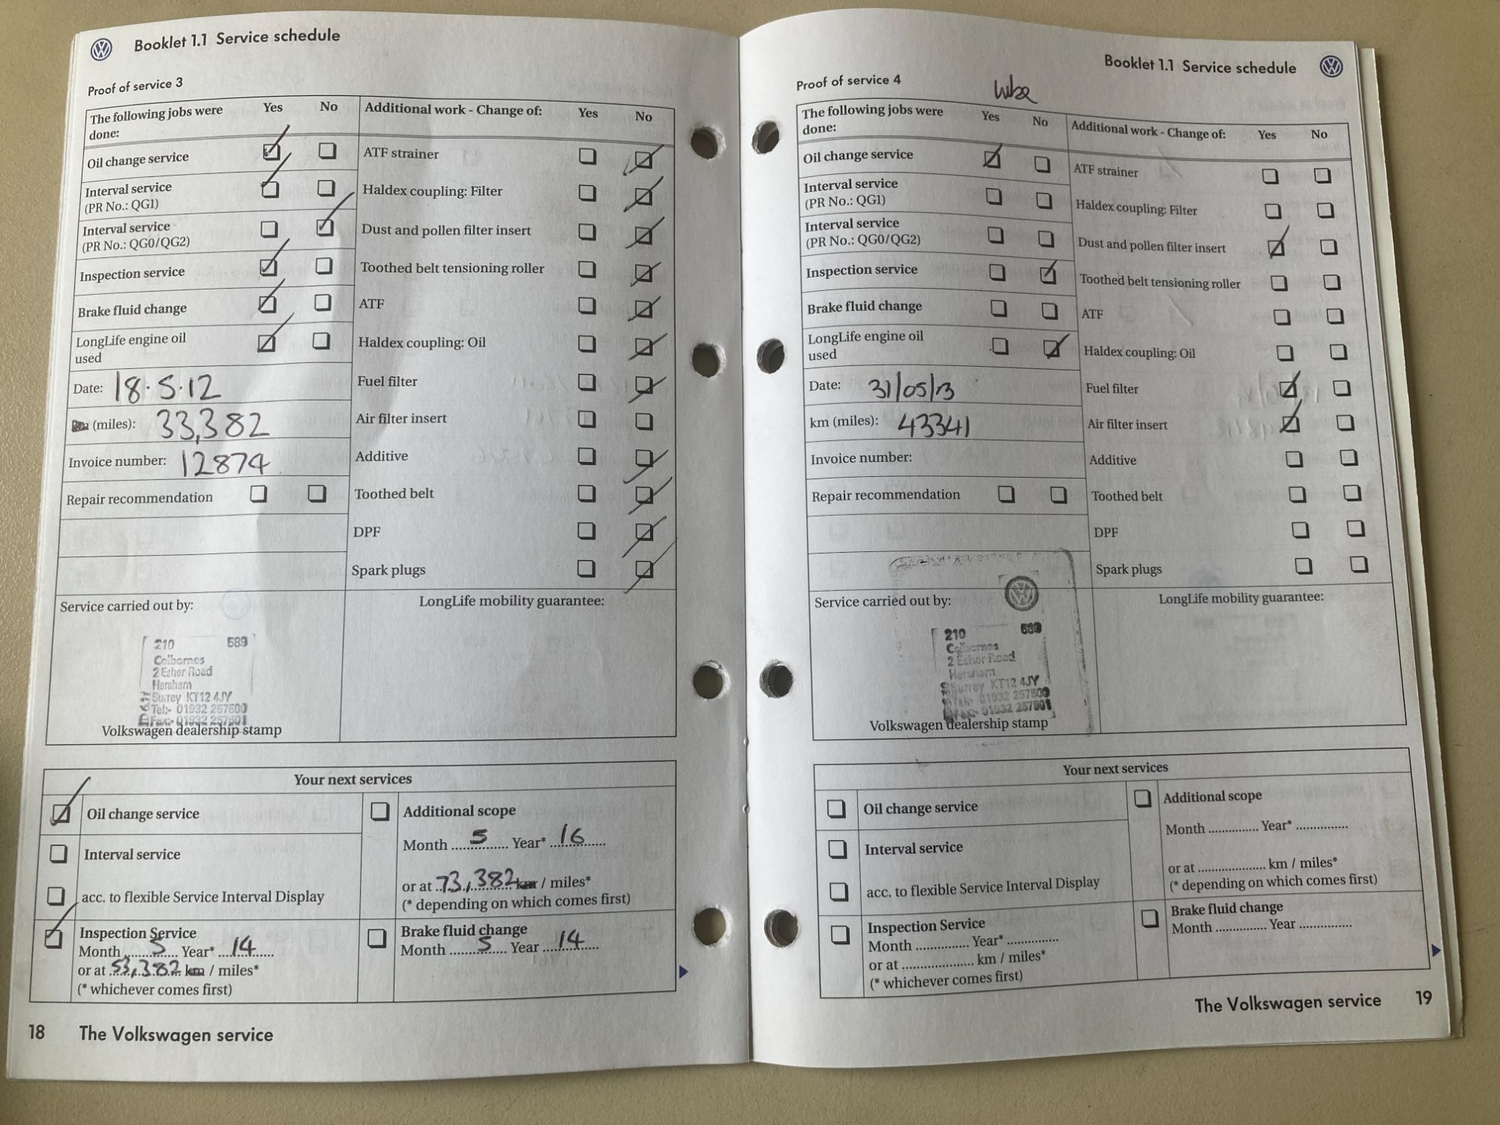 Booklet 1.1 Service schedule
Proof of service 3
The following jobs were done: Yes No
Oil change service
Interval service
(PR No.: QG1)
Interval service
(PR No.: QG0/QG2)
Inspection service
Brake fluid change
LongLife engine oil
used
Date: 18.5.12
(miles): 33,382
Invoice number: 12874
Repair recommendation
Additional work - Change of: Yes No
ATF strainer
Haldex coupling: Filter
Dust and pollen filter insert
Toothed belt tensioning roller
ATF
Haldex coupling: Oil
Fuel filter
Air filter insert
Additive
Toothed belt
DPF
Spark plugs
Service carried out by:
210 689
Colbornes
2 Esher Road
Hersham
Surrey KT12 4JY
Tel:- 01932 257500
Fax:- 01932 257501
Volkswagen dealership stamp
LongLife mobility guarantee:
Your next services
Oil change service
Interval service
acc. to flexible Service Interval Display
Inspection Service
Month 5 Year* 14
or at 53,382 km / miles*
(* whichever comes first)
Additional scope
Month 5 Year* 16
or at 73,382 km / miles*
(* depending on which comes first)
Brake fluid change
Month 5 Year 14
18 The Volkswagen service
Booklet 1.1 Service schedule
Proof of service 4
The following jobs were done: Yes No
Oil change service
Interval service
(PR No.: QG1)
Interval service
(PR No.: QG0/QG2)
Inspection service
Brake fluid change
LongLife engine oil
used
Date: 31/05/13
km (miles): 43341
Invoice number:
Repair recommendation
Additional work - Change of: Yes No
ATF strainer
Haldex coupling: Filter
Dust and pollen filter insert
Toothed belt tensioning roller
ATF
Haldex coupling: Oil
Fuel filter
Air filter insert
Additive
Toothed belt
DPF
Spark plugs
Service carried out by:
210 689
Colbornes
2 Esher Road
Hersham
Surrey KT12 4JY
Tel:- 01932 257500
Fax:- 01932 257501
Volkswagen dealership stamp
LongLife mobility guarantee:
Your next services
Oil change service
Interval service
acc. to flexible Service Interval Display
Inspection Service
Month Year*
or at km / miles*
(* whichever comes first)
Additional scope
Month Year*
or at km / miles*
(* depending on which comes first)
Brake fluid change
Month Year
The Volkswagen service 19